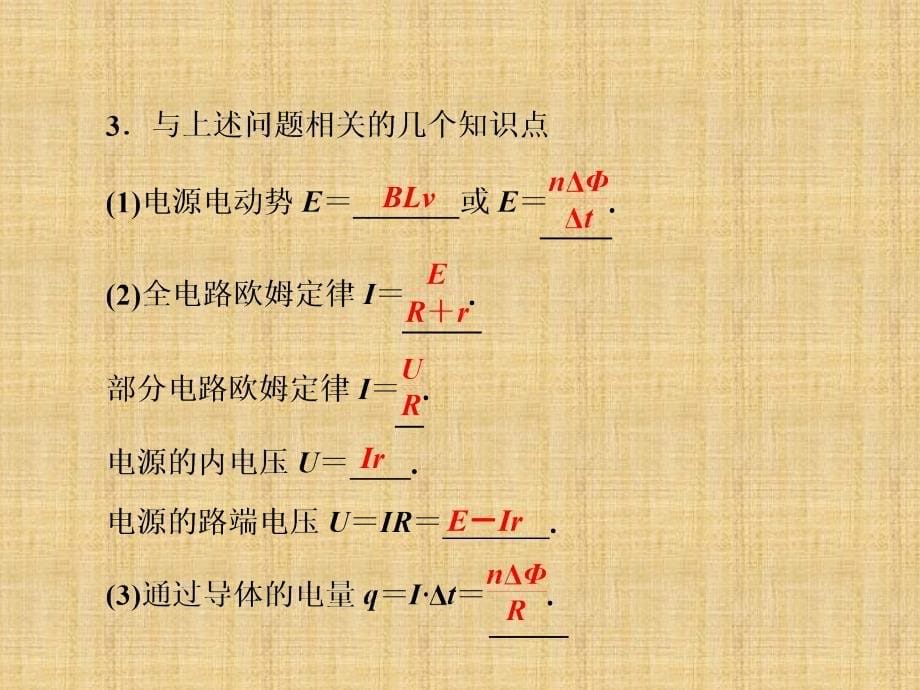 3．与上述问题相关的几个知识点
(1)电源电动势 E＝BLv或 E＝nΔΦ/Δt.
(2)全电路欧姆定律 I＝E/R＋r.
部分电路欧姆定律 I＝U/R.
电源的内电压 U＝Ir.
电源的路端电压 U＝IR＝E－Ir.
(3)通过导体的电量 q＝I·Δt＝nΔΦ/R.